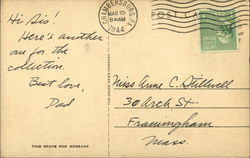 CHAMBERSBURG, PA.
MAR 10
8 AM
1944
POST CARD
Hi Sis!
Here's another
one for the
collection.
Best love,
Dad
Miss Anne C. Stillwell
30 Arch St.
Framingham
Mass.
THIS SPACE FOR MESSAGE